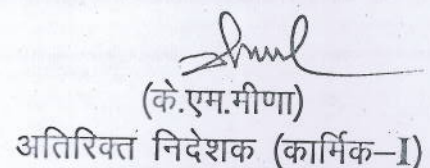 (के.एम.मीणा)
अतिरिक्त निदेशक (कार्मिक–I)